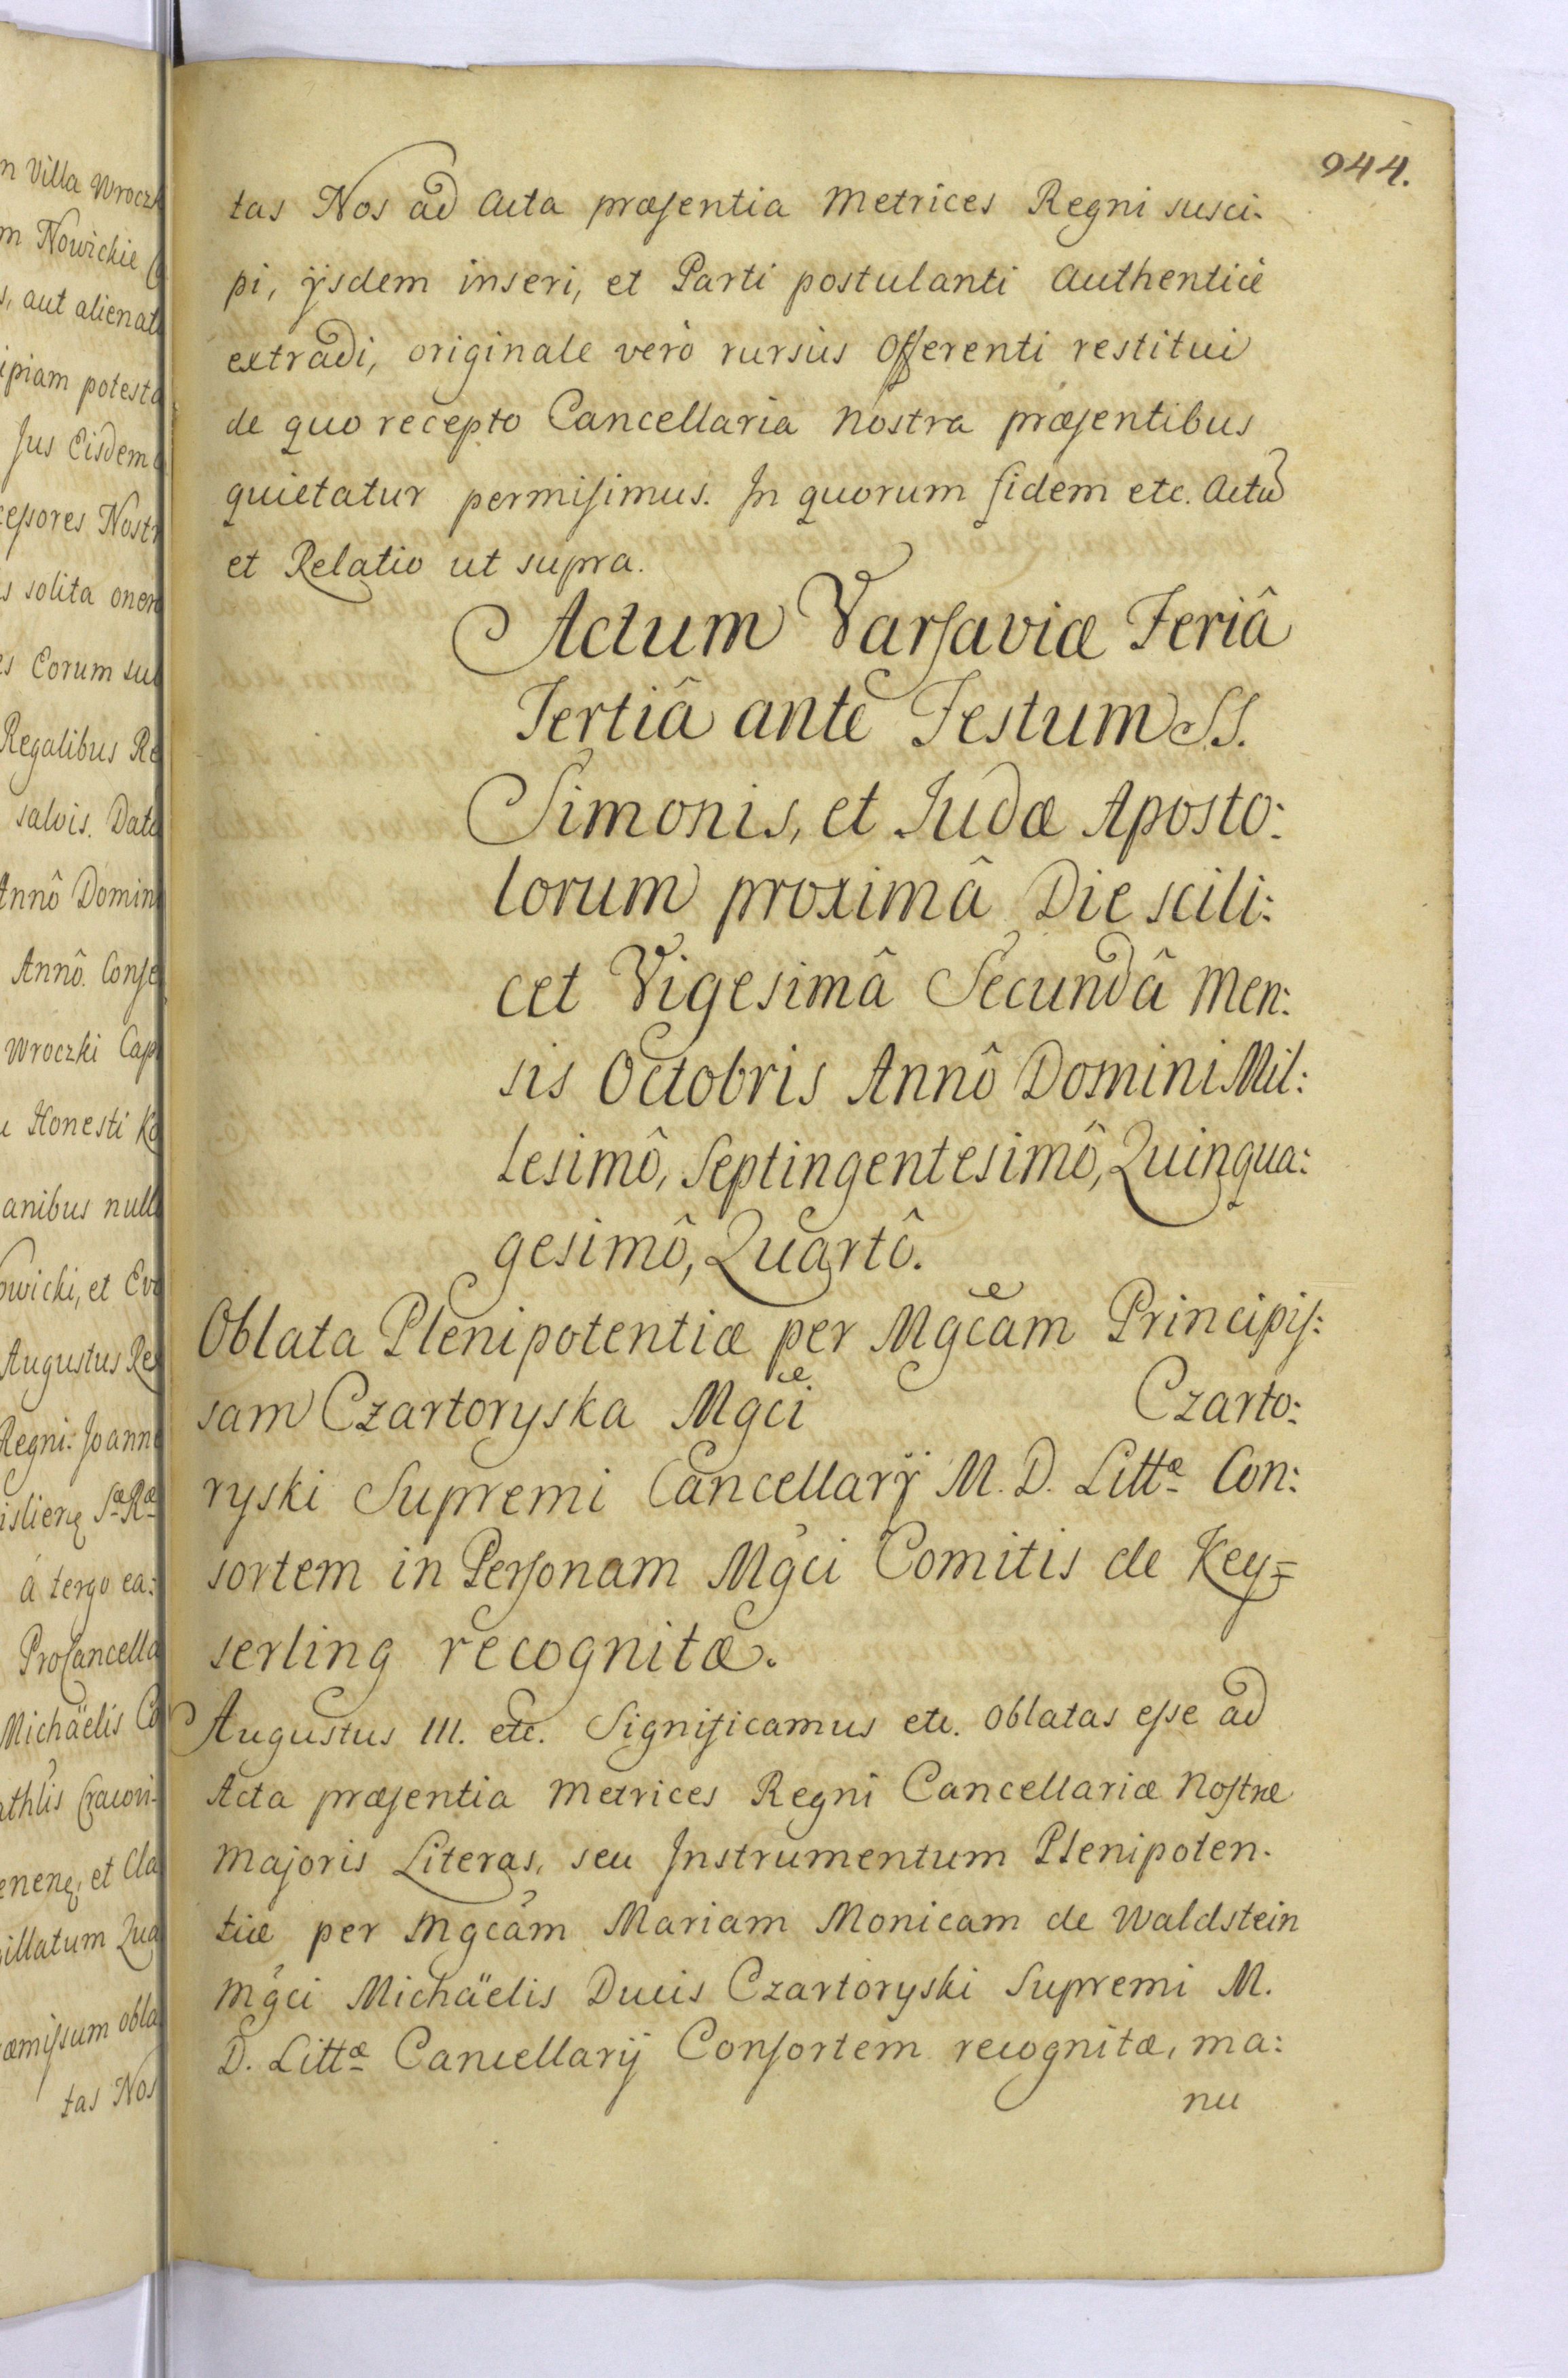 944.
tas Nos ad Acta præsentia Metrices Regni susci-
pi, ijsdem inseri, et Parti postulanti authenticè
extradi, originale verò rursùs offerenti restitui
de quo recepto Cancellaria Nostra præsentibus
quietatur permisimus. In quorum fidem etc. Actũ
et Relatio ut supra.
Actum Varsaviæ Feriâ
Tertiâ ante Festum SS.
Simonis, et Judæ Aposto:
lorum proximâ Die scili:
cet Vigesimâ Secundâ Men:
sis Octobris Annô Domini Mil:
lesimô, Septingentesimô, Quinqua:
gesimô, Quartô.
Oblata Plenipotentiæ per Mgcam Principis:
sam Czartoryska Mgci Czarto:
ryski Supremi Cancellarij M. D. Littæ Con:
sortem in Personam Mgci Comitis de Key=
serling recognitæ.
Augustus III. etc. Significamus etc. oblatas esse ad
Acta præsentia Metrices Regni Cancellariæ Nostræ
Majoris Literas, seu Instrumentum Plenipoten-
tiæ per Mgcam Mariam Monicam de Waldstein
Mgci Michäelis Ducis Czartoryski Supremi M.
D. Littæ Cancellarij Consortem recognitæ, ma:
nu
n Villa Wrocz
m Nowickie
s, aut alienat
ipiam potesta
Jus Eisdem
cessores Nostr
s solita oner
es Eorum su
Regalibus Re
salvis. Dat
Annô Domin
Annô. Conse
Wroczki Cap
Honesti Ko
anibus null
owicki, et Ev
Augustus Rex
Regni: Joann
á tergo ea:
ProCancella
Michäelis Co
athlis Cracovi-
et Cla
illatum Qua
æmissum obla
tas Nos